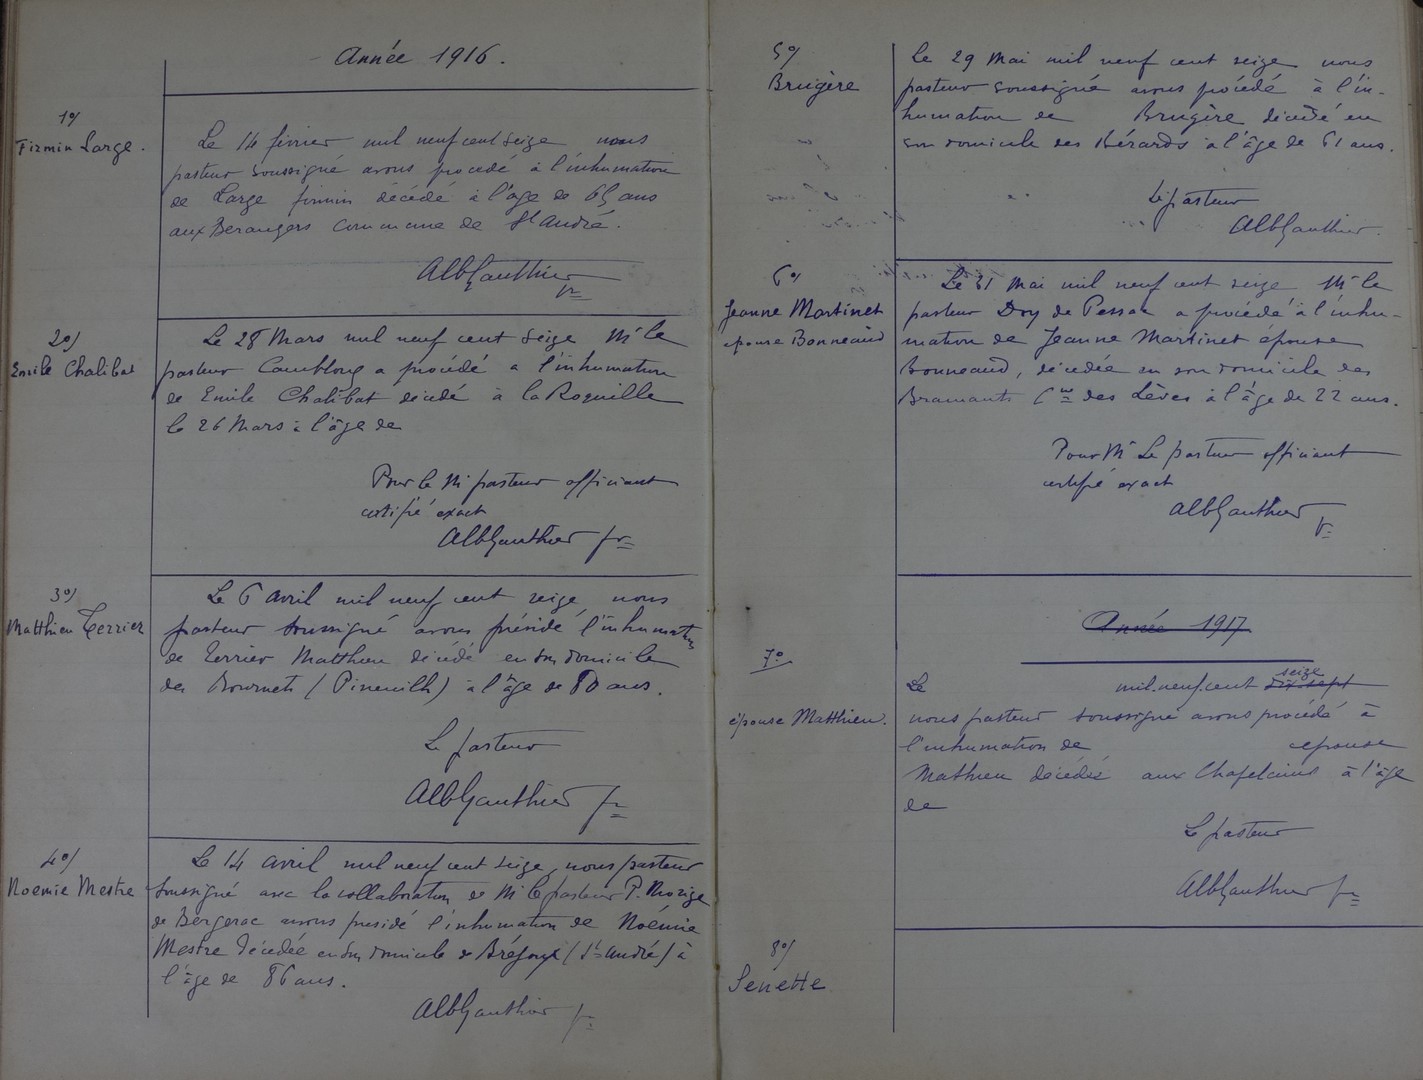 Année 1916.
1º/
Firmin Large.
Le 14 février mil neuf cent seize nous
pasteur soussigné avons procédé à l'inhumation
de Large firmin décédé à l'âge de 65 ans
aux Berangers commune de St André.
AlbGauthier
pr
2º/
Emile Chalibat
Le 28 Mars mil neuf cent seize Mr le
pasteur a procédé a l'inhumation
de Emile Chalibat décédé à la Roquille
le 26 Mars à l'âge de
Pour le Mr pasteur officiant
certifié exact
AlbGauthier pr
3º/
Matthieu Terrier
Le 6 avril mil neuf cent seize nous
pasteur soussigné avons présidé l'inhumation
de Terrier Matthieu décédé en son domicile
des Bournets (Pineuilh) à l'âge de 80 ans.
Le pasteur
AlbGauthier pr
4º/
Noémie Mestre
Le 14 avril mil neuf cent seize, nous pasteur
soussigné avec la collaboration de Mr le pasteur P.
de Bergerac avons présidé l'inhumation de Noémie
Mestre décédée en son domicile de (St André) à
l'âge de 86 ans.
AlbGauthier pr
5º/
Brugère
Le 29 Mai mil neuf cent seize nous
pasteur soussigné avons procédé à l'in-
humation de Brugère décédé en
son domicile des Bérards à l'âge de 61 ans.
Le pasteur
AlbGauthier.
6º/
Jeanne Martinet
épouse Bonneaud
Le 31 Mai mil neuf cent seize Mr le
pasteur Doy de Pessac a procédé à l'inhu-
mation de Jeanne Martinet épouse
Bonneaud, décédée en son domicile des
Bramants Cne des Lèves à l'âge de 22 ans.
Pour Mr Le pasteur officiant
certifié exact
AlbGauthier pr
Année 1917
7º
épouse Matthieu.
seize
Le mil neuf cent dix sept
nous pasteur soussigné avons procédé à
l'inhumation de épouse
Mathieu décédée aux Chapelains à l'âge
de
Le pasteur
AlbGauthier pr
8º/
Senette